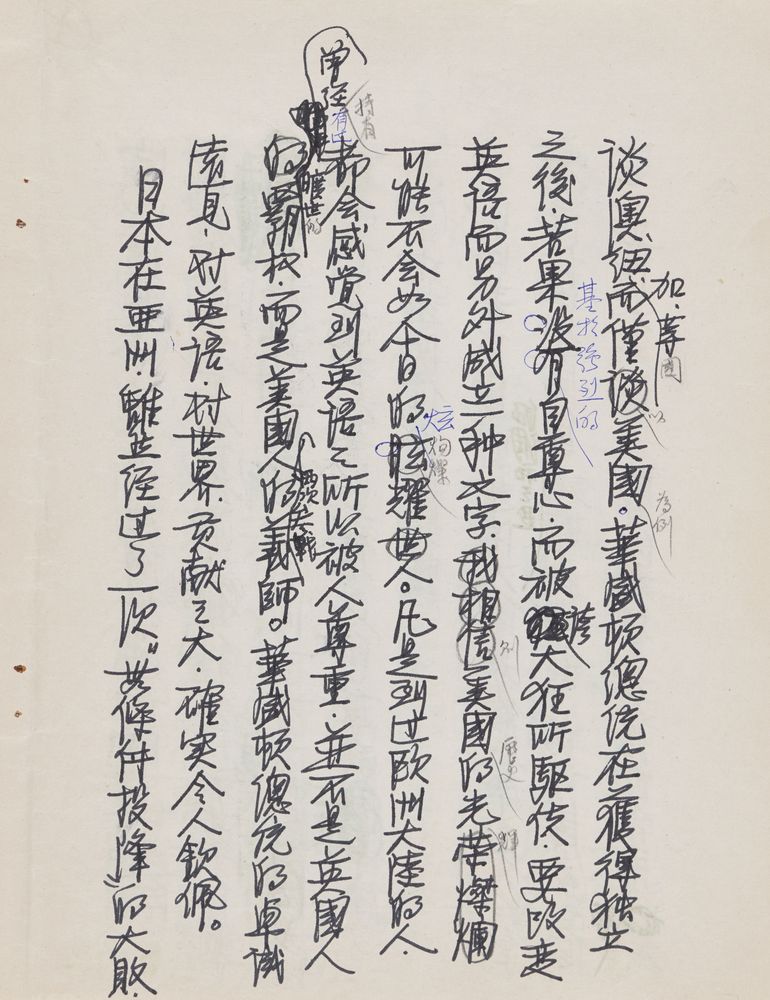 談奧、紐、加、等國而僅談美國以為例。華盛頓總統在獲得独立
之後．若果沒有基於強烈的自尊心．而被誇大狂所駆使．要改走
英语而另外成立一种文字．我相信則美國的歷史光榮輝燦爛
可能不会如今日的炫耀絢燦世人。凡是到过欧洲大陸的人．
都会感觉到英语之所以被人尊重．並不是英國人
曾经持有有过曠世的的覇权．而是美國人的頭参戰義師。華盛頓總统的卓識
遠見．对英语．对世界．贡献之大．確实令人欽佩。
日本在亚洲．雖然经过了一次〝無條件投降〞的大敗．